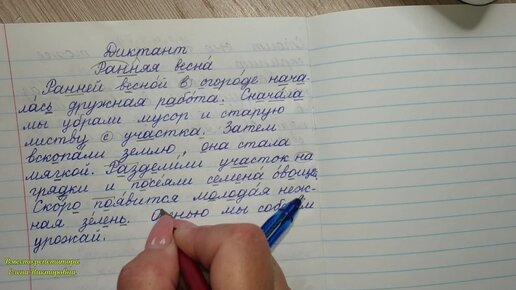 Диктант
Ранняя весна
Ранней весной в огороде нача-
лась дружная работа. Сначала
мы убрали мусор и старую
листву с участка. Затем
вскопали землю, она стала
мягкой. Разделили участок на
грядки и посеяли семена овощей.
Скоро появится молодая неж-
ная зелень. мы
урожай.
Вместо репетитора
Елена Викторовна